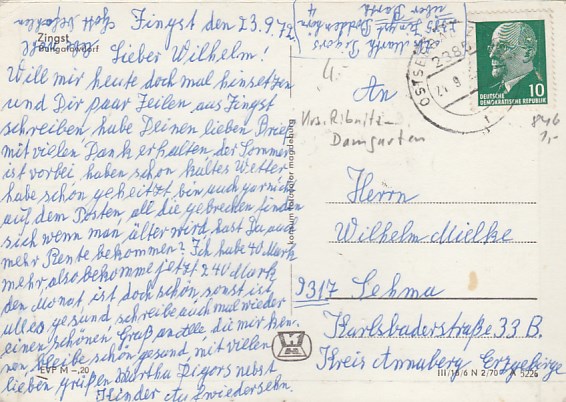 Zingst
Bungalowdorf
Zingst den 23.9.72
Lieber Wilhelm!
Will mir heute doch mal hinsetzen
und Dir paar Zeilen aus Zingst
schreiben, habe Deinen lieben Brief
mit vielen Dank erhalten der Sommer
ist vorbei haben schon kaltes Wetter
habe schön geheitzt bin auch garnich
auf dem Posten, all die gebrechen finden
sich wenn man älter wird hast Du auch
mehr Rente bekommen? Ich habe 40 Mark
mehr, also bekomme jetzt 240 Mark
den Monat, ist doch schön, sonst ist
alles gesund, schreibe auch mal wieder
einen schönen Gruß an alle die mir ken-
nen bleibe schön gesund, mit vielen
lieben grüßen Martha Pigors nebst
Kinder Auf Wiedersehn.
EVP M –,20
konsum fotocolor magdeburg
über Barth
OSTSEE
2385
DEUTSCHE
DEMOKRATISCHE REPUBLIK
10
An
Krs. Ribnitz-
Damgarten
846
1,-
Herrn
Wilhelm Mielke
9317 Sehma
Karlsbaderstraße 33 B.
Kreis Annaberg Erzgebirge
III/18/6 N 2/70 A 5226